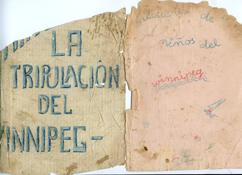 LA
TRIPULACIÓN
DEL
WINNIPEG-
de
niños del
winnipeg